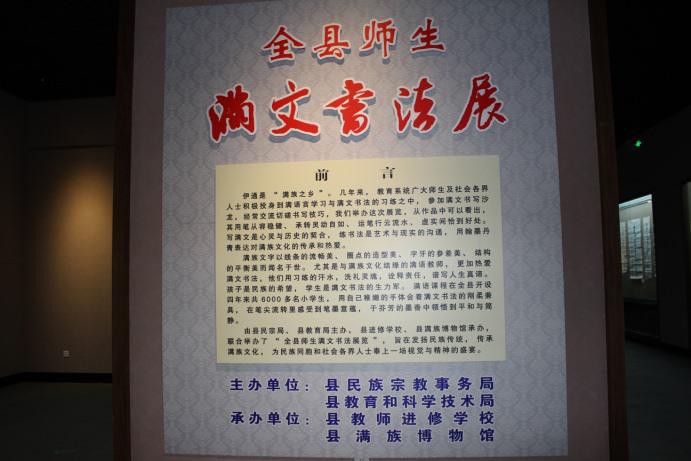 全县师生
满文书法展
前 言
伊通是“满族之乡”。几年来,教育系统广大师生及社会各界
人士积极投身到满语言学习与满文书法的习练之中,参加满文书写沙
龙,经常交流切磋书写技巧,我们举办这次展览,从作品中可以看出,
其用笔从容稳健、承转灵动自如、运笔行云流水、虚实间恰到好处。
写满文是心灵与历史的契合,练书法是艺术与现实的沟通,用翰墨丹
青表达对满族文化的传承和热爱。
满族文字以线条的流畅美、圈点的造型美、字牙的参差美、结构
的平衡美而闻名于世。尤其是与满族文化结缘的满语教师,更加热爱
满文书法,他们用习练的汗水,洗礼灵魂,诠释责任,谱写人生真谛。
孩子是民族的希望,学生是满文书法的生力军。满语课程在全县开设
四年来共6000多名小学生,用自己稚嫩的手体会着满文书法的刚柔兼
具,在笔尖流转里感受到笔墨意蕴,于芬芳的墨香中领悟到平和与简
静。
由县民宗局、县教育局主办,县进修学校、县满族博物馆承办,
联合举办了“全县师生满文书法展览”,旨在发扬民族传统,传承
满族文化,为民族同胞和社会各界人士奉上一场视觉与精神的盛宴。
主办单位:县民族宗教事务局
县教育和科学技术局
承办单位:县教师进修学校
县满族博物馆